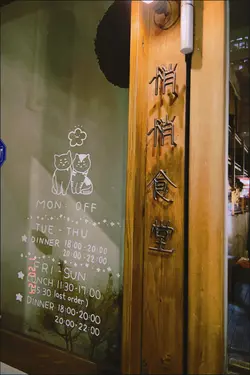 MON OFF
TUE - THU
DINNER 18:00-20:00
20:00-22:00
FRI - SUN
LUNCH 11:30-17:00
(15:30 last order)
DINNER 18:00-20:00
20:00-22:00
悄悄食堂